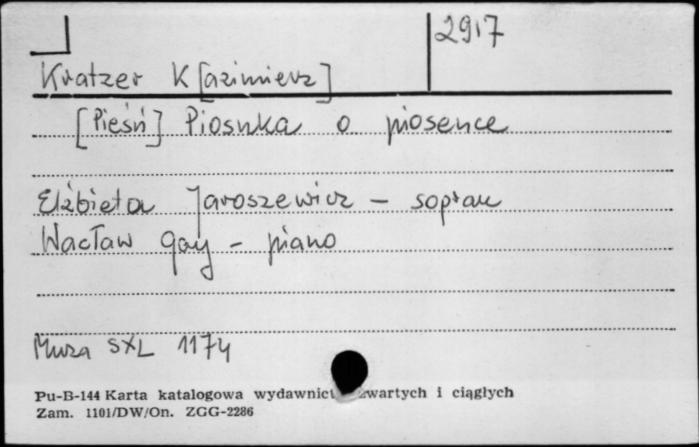 2917
Kratzer K[azimierz]
[Pieśń] Piosnka o piosence
Elżbieta Jaroszewicz - sopran
Wacław Gay - piano
Muza SXL 1174
Pu-B-144 Karta katalogowa wydawnict zwartych i ciągłych
Zam. 1101/DW/On. ZGG-2286